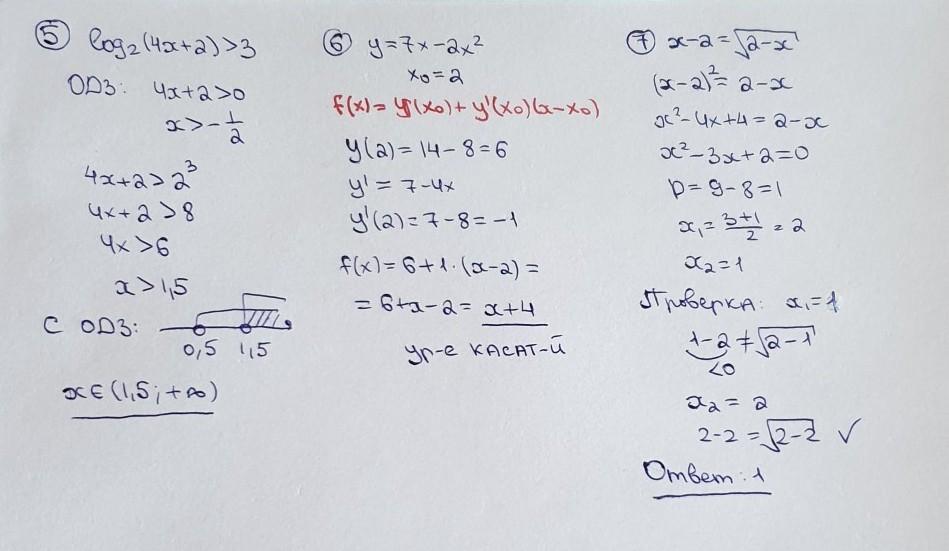 5 log₂(4x+2)>3
ОДЗ: 4x+2>0
x>-1/2
4x+2>2³
4x+2>8
4x>6
x>1,5
С ОДЗ:
0,5 1,5
x∈(1,5;+∞)
6 y=7x-2x²
x₀=2
f(x)=y(x₀)+y'(x₀)(x-x₀)
y(2)=14-8=6
y'=7-4x
y'(2)=7-8=-1
f(x)=6+1·(x-2)=
=6+x-2=x+4
ур-е КАСАТ-й
7 x-2=√(2-x)
(x-2)²=2-x
x²-4x+4=2-x
x²-3x+2=0
D=9-8=1
x₁=(3+1)/2=2
x₂=1
Проверка: x₁=1
1-2≠√(2-1)
<0
x₂=2
2-2=√(2-2) ✓
Ответ: 1